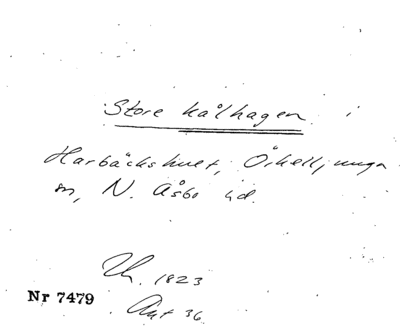 Store kålhagen i
Harbäckshult, Örkelljunga
sn, N. Åsbo hd.
1823
Nr 7479
Akt 36